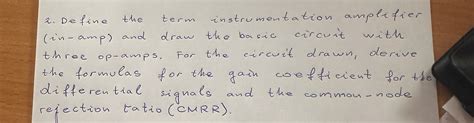 2. Define the term instrumentation amplifier
(in-amp) and draw the basic circuit with
three op-amps. For the circuit drawn, derive
the formulas for the gain coefficient for the
differential signals and the common-node
rejection ratio (CMRR).